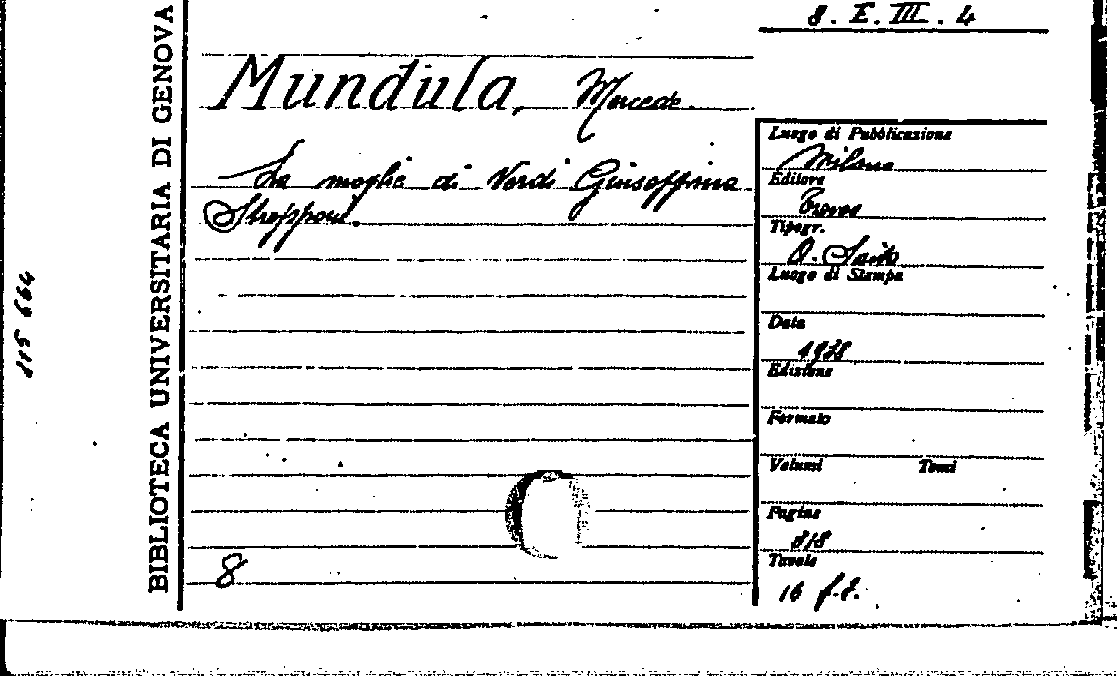 8. E. III. 4
BIBLIOTECA UNIVERSITARIA DI GENOVA
115 664
Mundula, Mercede.
La moglie di Verdi Giuseppina
Strepponi.
Luogo di Pubblicazione
Milano
Editore
Treves
Tipogr.
Luogo di Stampa
Data
1938
Edizione
Formato
Volumi Tomi
Pagine
318
Tavole
16 f.t.
8